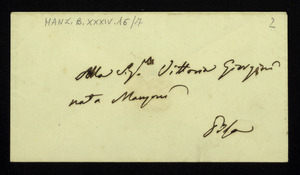 MANZ. B. XXXIV. 16/17
2
Alla Sig.ra Vittoria Giorgini
nata Manzoni
Pisa